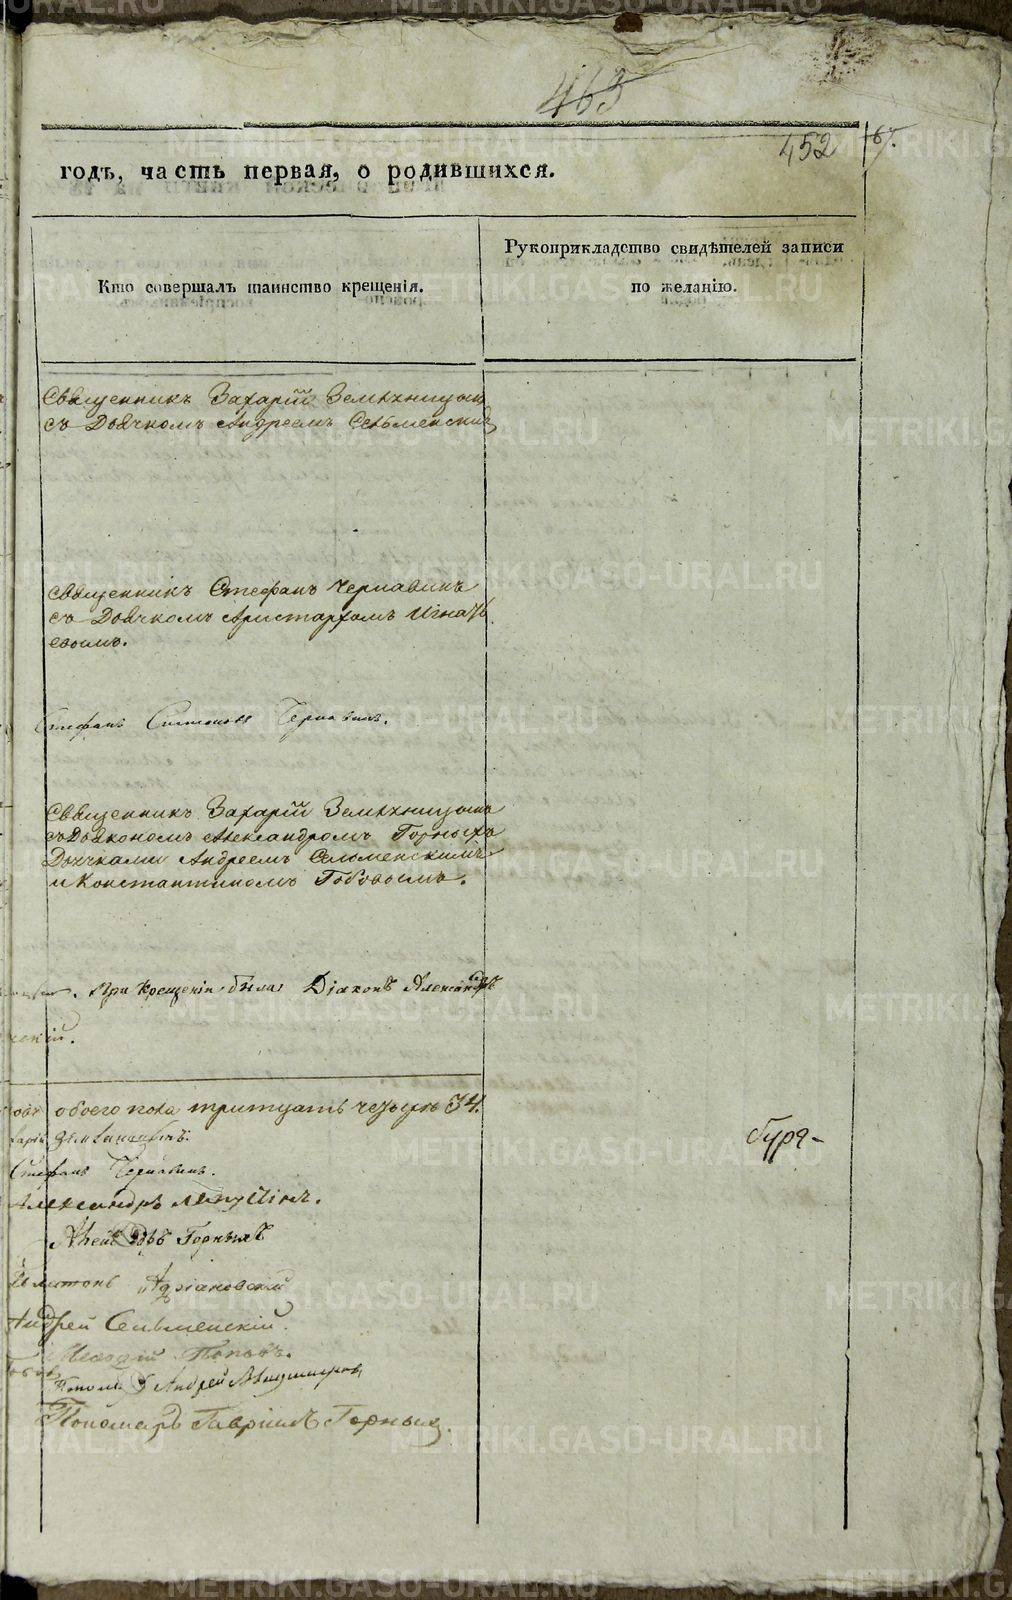 463
452
67.
годъ, часть первая, о родившихся.
Кто совершалъ таинство крещенія.
Рукоприкладство свидѣтелей записи
по желанію.
Священникъ Захарій Земляницынъ
съ Дьячкомъ Андреемъ Сельменскимъ
Священникъ Стефанъ Чернавинъ
съ Дьячкомъ Аристархомъ Игнать
евымъ.
Стефанъ Симоновъ Чернавинъ.
Священникъ Захарій Земляницынъ
съ Дьякономъ Александромъ Горныхъ
Дьячками Андреемъ Селменскимъ
и Константиномъ Гобовымъ.
При Крещеніи былъ Діаконъ Александръ
скій.
обоего пола тритцать четыре 34.
Стефанъ Чернавинъ.
Александръ Лапустинъ.
Горныхъ
Платонъ Адріановскій
Андрей Сельменскій.
Поповъ.
Андрей
Пономарь Гавріилъ Горныхъ.
METRIKI.GASO-URAL.RU